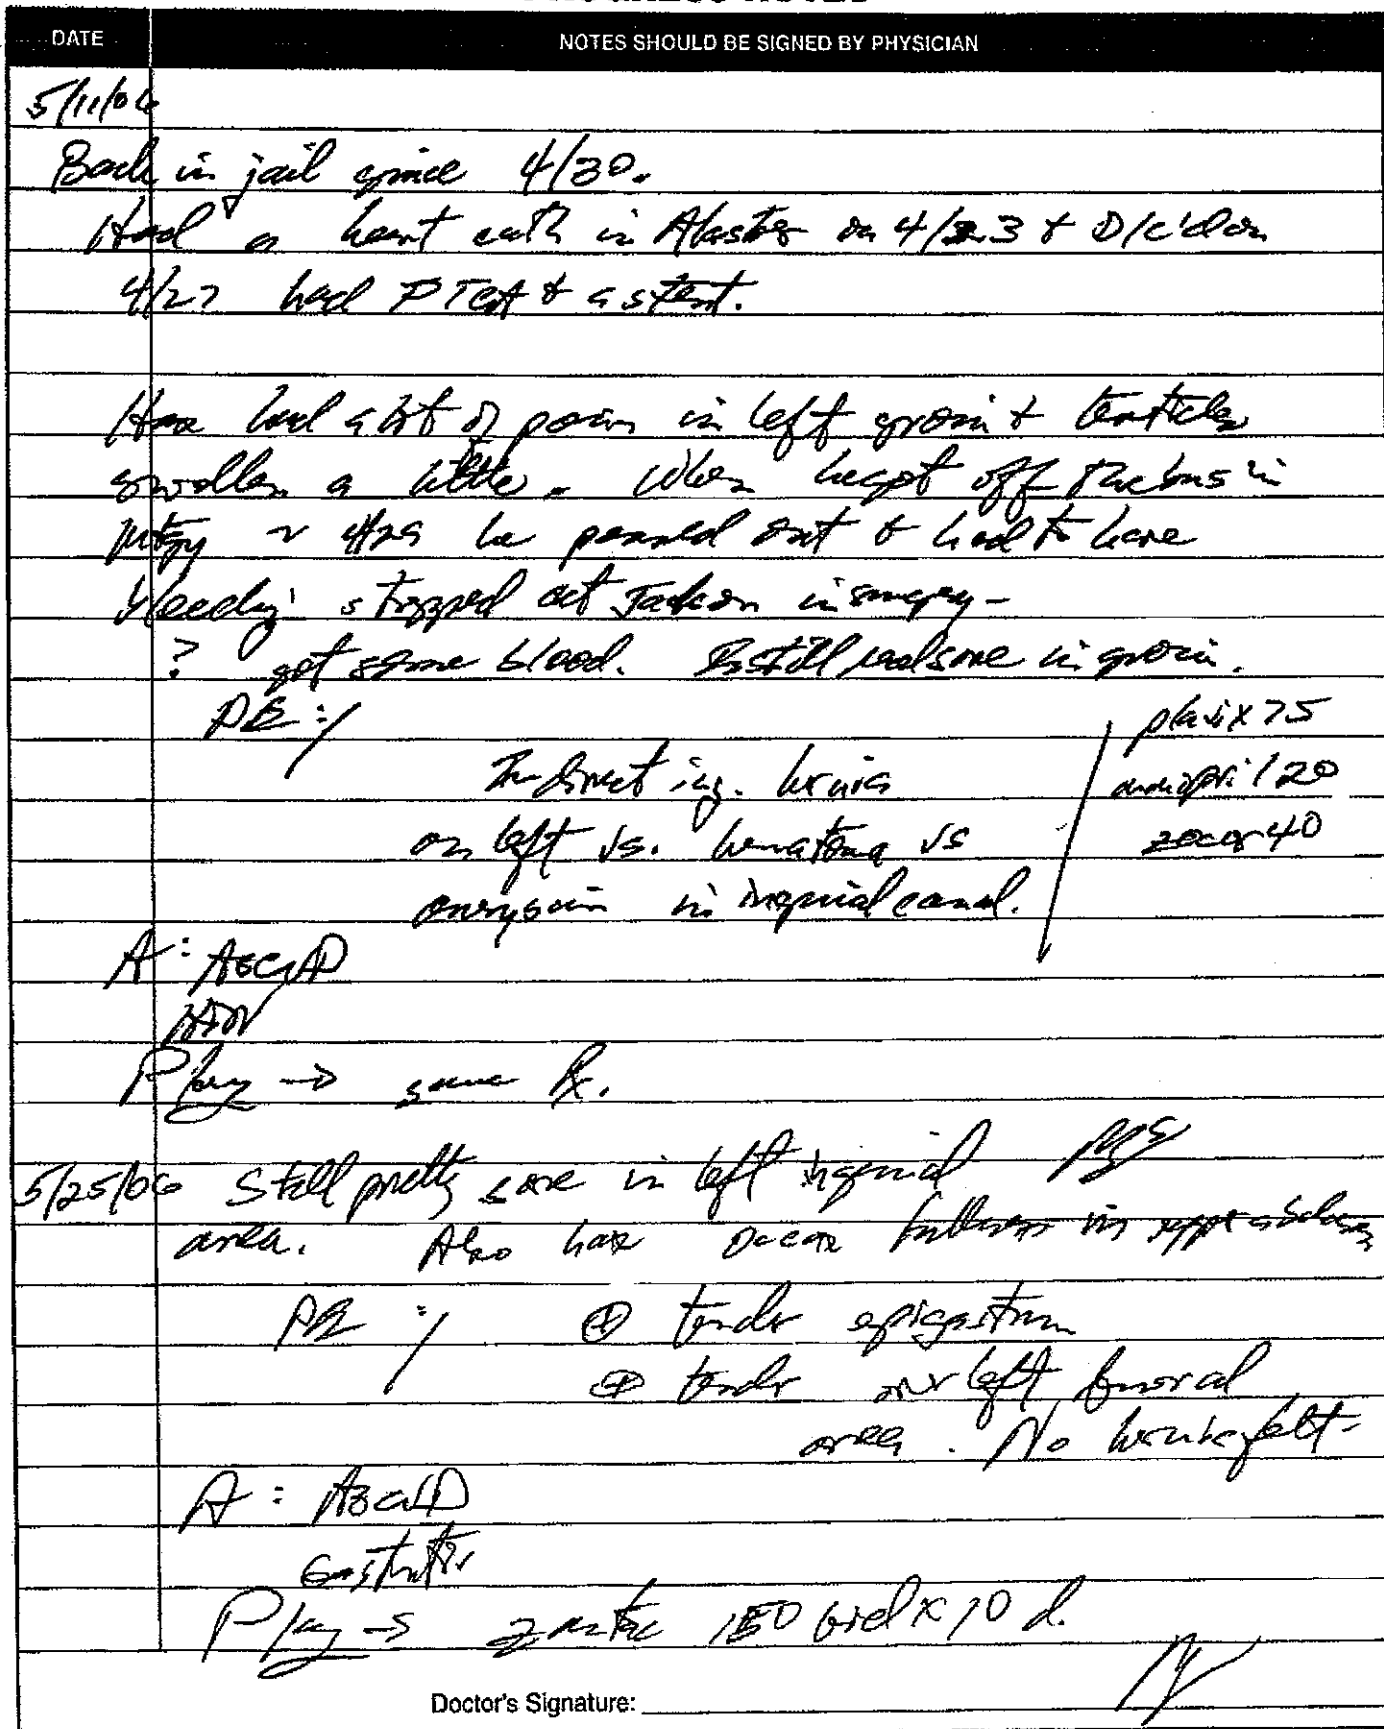 DATE NOTES SHOULD BE SIGNED BY PHYSICIAN
5/11/06
Back in jail since 4/30.
Had a heart cath in Alaster on 4/23 & D/C'd on
4/27 had PTCA & a stent.
Has had a bit of pain in left groin & testicle
swollen a little. When he got off the bus in
mtgy ~ 4/29 he passed out & had to have
bleeding stopped at Jackson in surgery -
? got some blood. Is still real sore in groin.
PE :/ plavix 75
Indirect ing. hernia 20
on left vs. hematoma vs zocor 40
aneurysm in inguinal canal.
A: ASCVD
HTN
Plan → same Rx.
5/25/06 Still pretty sore in left inguinal
area. Also has occas fullness in upper abdomen
PE :/ ⊕ tender epigastrum
⊕ tender over left femoral
area. No hernia felt.
A: ASCVD
Gastritis
Plan → zantac 150 bid x 10 d.
Doctor's Signature: